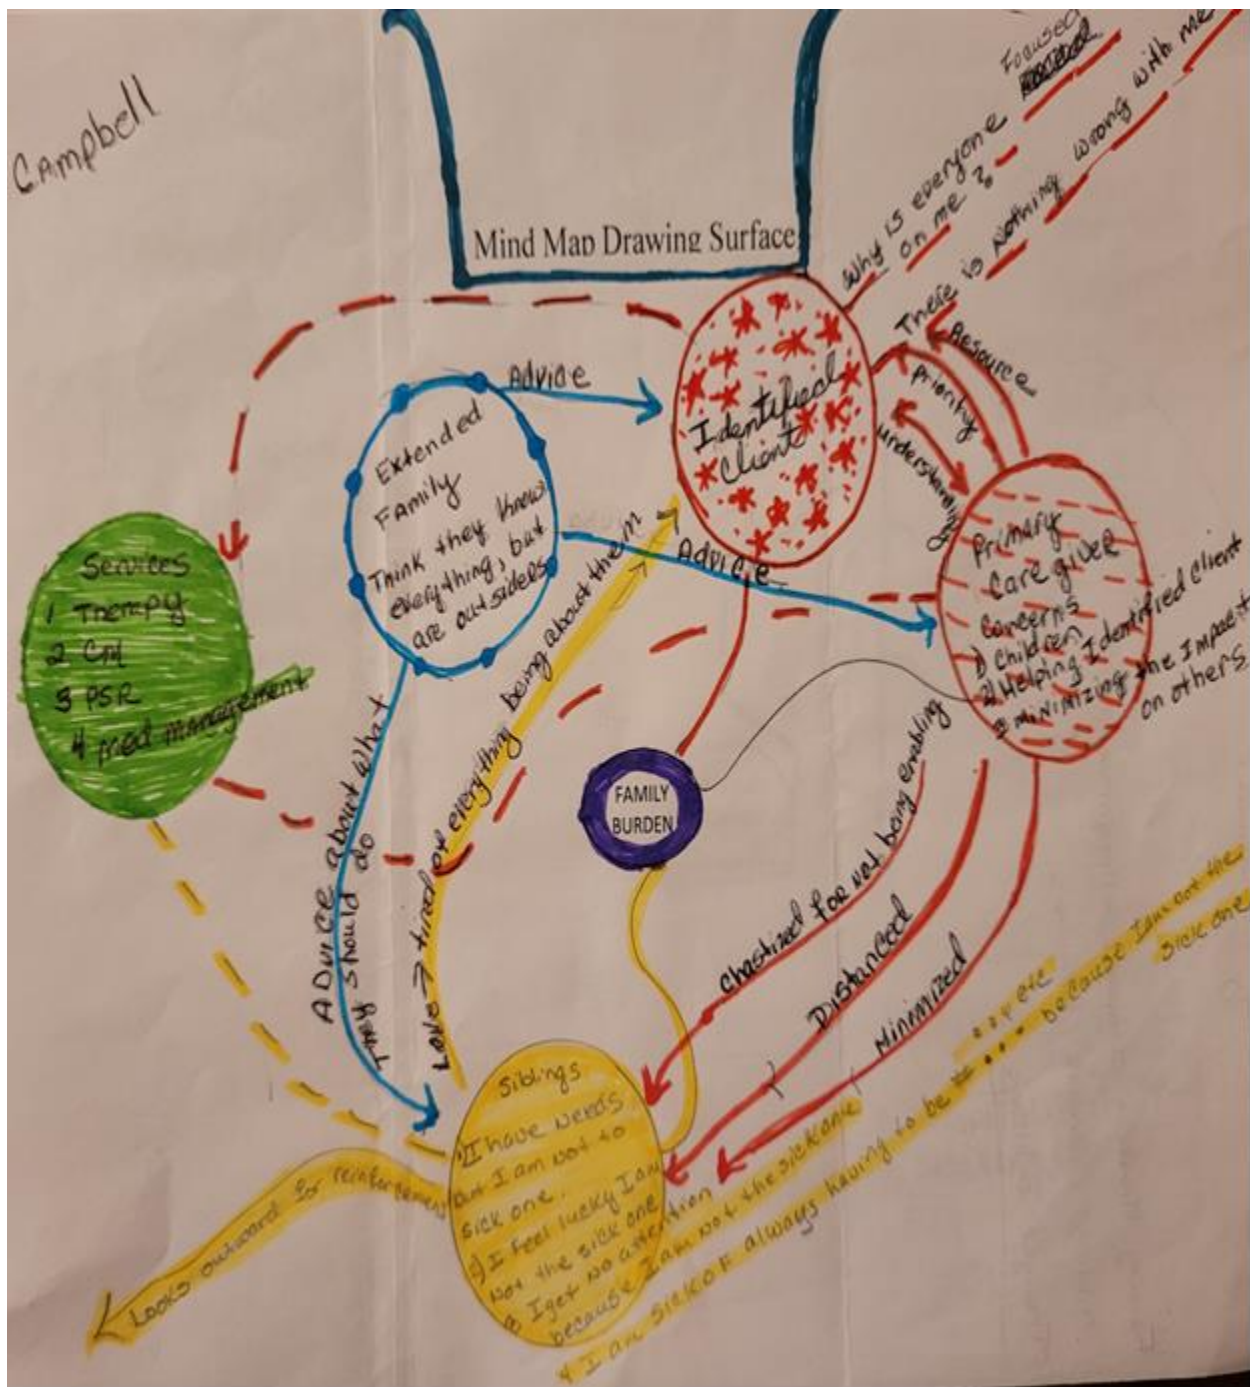 Campbell
Mind Map Drawing Surface
Focused
Why is everyone
on me?
There is nothing wrong with me
Resource
Priority
Understanding
Identified
Client
Advice
Extended
Family
Think they know
everything, but
are outsiders
Advice
Primary
Care giver
Concerns
1) Children
2) Helping Identified Client
3) Minimizing the Impact
on others
Services
1 Therapy
2 CM
3 PSR
4 Med management
Advice about what
they should do
Love → tired of everything being about them
FAMILY
BURDEN
Chastized for not being enabling
Distanced
Minimized
Siblings
1) I have needs
but I am not to
sick one.
2) I feel lucky I am
not the sick one
3 I get no attention
because I am not the sick one
4 I am sick of always having to be
etc
because I am not the
sick one
Looks outward for reinforcement